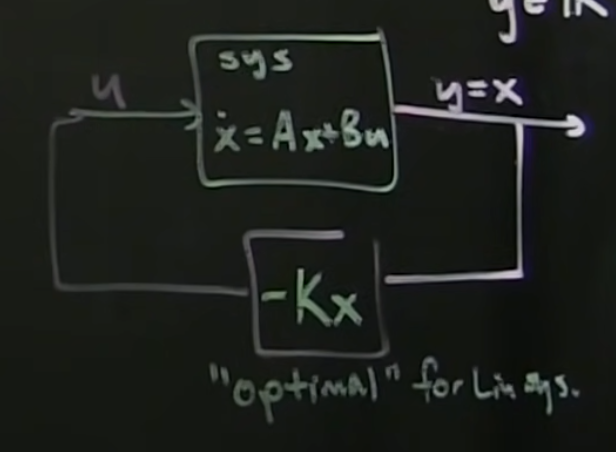 y∈ℝ
sys
u
y=x
ẋ=Ax+Bu
-Kx
"optimal" for Lin sys.